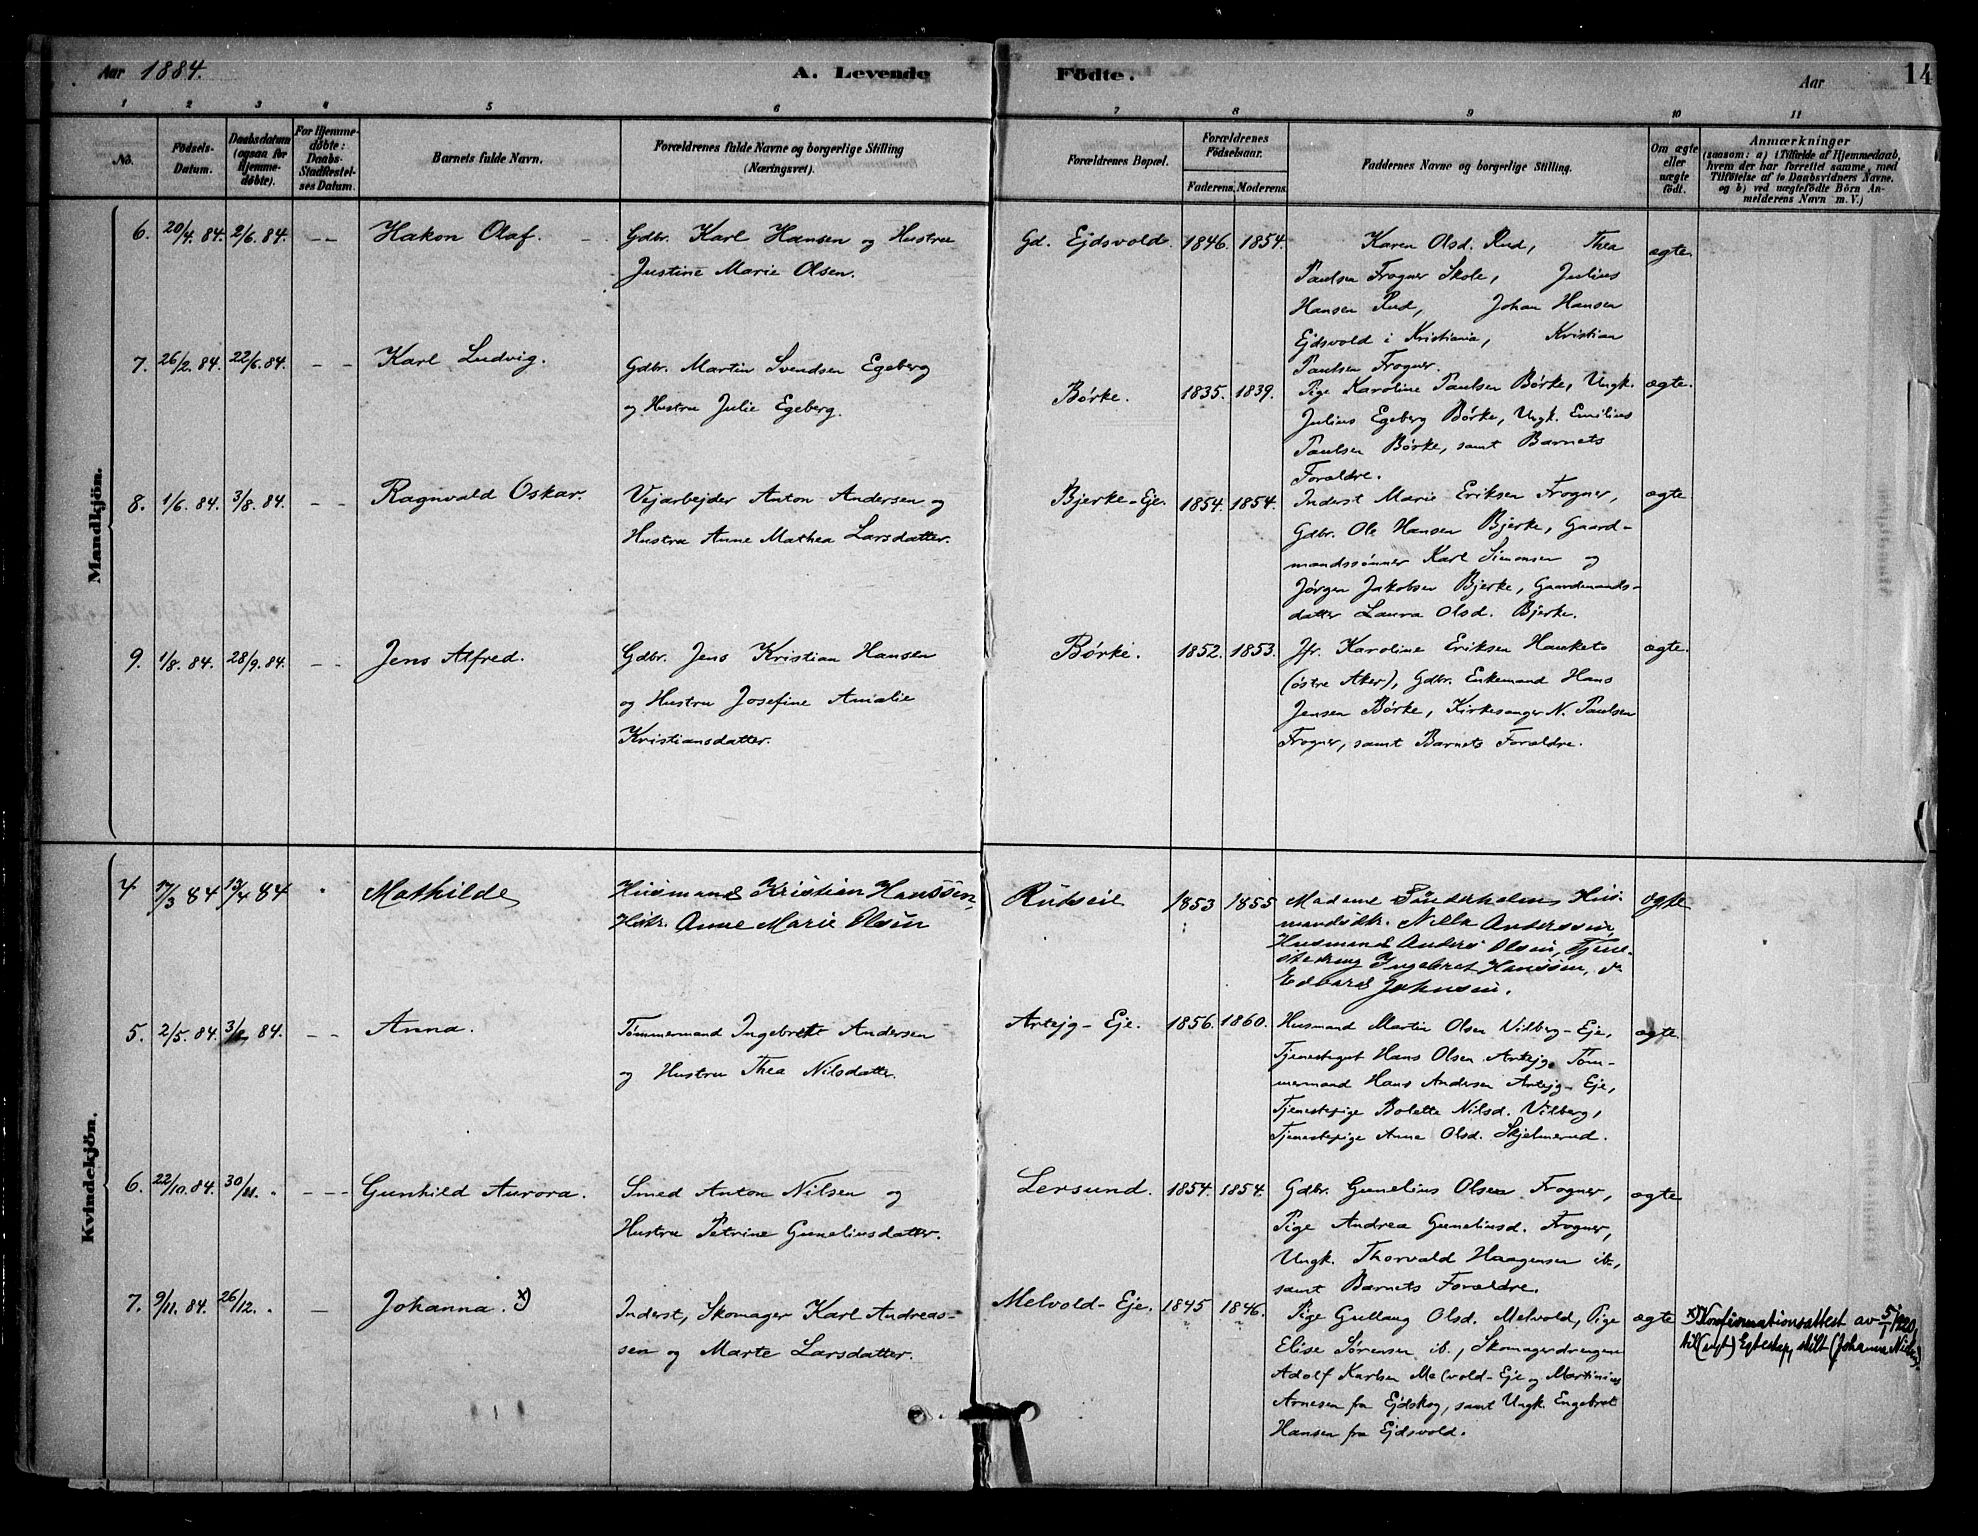 Aar 1884. A. Levende Födte. Aar 14
1 2 3 4 5 6 7 8 9 10 11
No.
Fødsels-
Datum.
Daabsdatum
(ogsaa for
Hjemme-
døbte).
For Hjemme-
døbte:
Daabs-
Stadfæstel-
ses Datum.
Barnets fulde Navn.
Forældrenes fulde Navne og borgerlige Stilling
(Næringsvei).
Forældrenes Bopæl.
Forældrenes
Fødselsaar.
Faderens. Moderens.
Faddernes Navne og borgerlige Stilling.
Om ægte
eller
uægte
født.
Anmærkninger
(saasom: a) i Tilfælde af Hjemmedaab,
hvem der har forrettet samme, med
Tilføielse af to Daabsvidners Navne.
og b) ved uægtefødte Börn An-
melderens Navn m. V.)
Mandkjön.
6. 20/4. 84. 2/6. 84. -- Hakon Olaf.
Gdbr. Karl Hansen og Hustru
Justine Marie Olsen.
Gd. Ejdsvold. 1846. 1854.
Karen Olsd. Rud, Thea
Paulsen Frogner Skole, Julius
Hansen Rud, Johan Hansen
Ejdsvold i Kristiania, Kristian
Paulsen Frogner.
ægte.
7. 26/2. 84. 22/6. 84. -- Karl Ludvig.
Gdbr. Martin Svendsen Egeberg
og Hustru Julie Egeberg.
Børke. 1835. 1839.
Pige Karoline Paulsen Børke, Ungk.
Julius Egeberg Børke, Ungk. Emilius
Paulsen Børke, samt Barnets
Forældre.
ægte.
8. 1/6. 84. 3/8. 84. -- Ragnvald Oskar.
Vejarbejder Anton Andersen og
Hustru Anne Mathea Larsdatter.
Bjerke-Eje. 1854. 1854.
Inderst Marie Eriksen Frogner,
Gdbr. Ole Hansen Bjerke, Gaard-
mandssønner Karl Simonsen og
Jørgen Jakobsen Bjerke, Gaardmands-
datter Laura Olsd. Bjerke.
ægte
9. 1/8. 84. 28/9. 84. -- Jens Alfred.
Gdbr. Jens Kristian Hansen
og Hustru Josefine Amalie
Kristiansdatter.
Børke. 1852. 1853.
Jfr. Karoline Eriksen Hauketo
(østre Aker), Gdbr. Enkemand Hans
Jensen Børke, Kirkesanger N. Paulsen
Frogner, samt Barnets Forældre.
ægte.
Kvindekjön.
4 17/3 84 13/4 84 Mathilde
Husmand Kristian Hanssen,
Hstr. Anne Marie Olsen
1853 1855
Madame Sönderholm, Hus-
Nille Anderssen,
Husmand Anders Olsen, Tjene-
Ingebret Hanssen,
Edvard Johnsen.
ægte
5. 2/5. 84. 84. -- Anna.
Tømmermand Ingebret Andersen
og Hustru Thea Nilsdatter.
Arteig-Eje. 1856. 1860.
Husmand Martin Olsen Vilberg-Eje,
Tjenestegut Hans Olsen Artejg, Tøm-
mermand Hans Andersen Artejg-Eje,
Tjenestepige Bolette Nilsd. Vilberg,
Tjenestepige Anne Olsd. Skjelmerud.
ægte.
6. 22/10. 84. 30/11. " --- Gunhild Aurora.
Smed Anton Nilsen og
Hustru Petrine Guneliusdatter.
Lersund. 1854. 1854.
Gdbr. Gunelius Olsen Frogner,
Pige Andrea Guneliusd. Frogner,
Ungk. Thorvald Haagensen ib.,
samt Barnets Forældre.
ægte
7. 9/11. 84. 26/12. " - Johanna. x)
Inderst, Skomager Karl Andreas-
sen og Marte Larsdatter.
Melvold-Eje. 1845 1846.
Pige Gullaug Olsd. Melvold, Pige
Elise Sørensen ib., Skomagerdrengene
Adolf Karlsen Melvold-Eje og Martinius
Arnesen fra Ejdskog, samt Ungk. Engebret
Hansen fra Ejdsvold.
ægte
x) Konfirmationsattest av 5/1 1920,